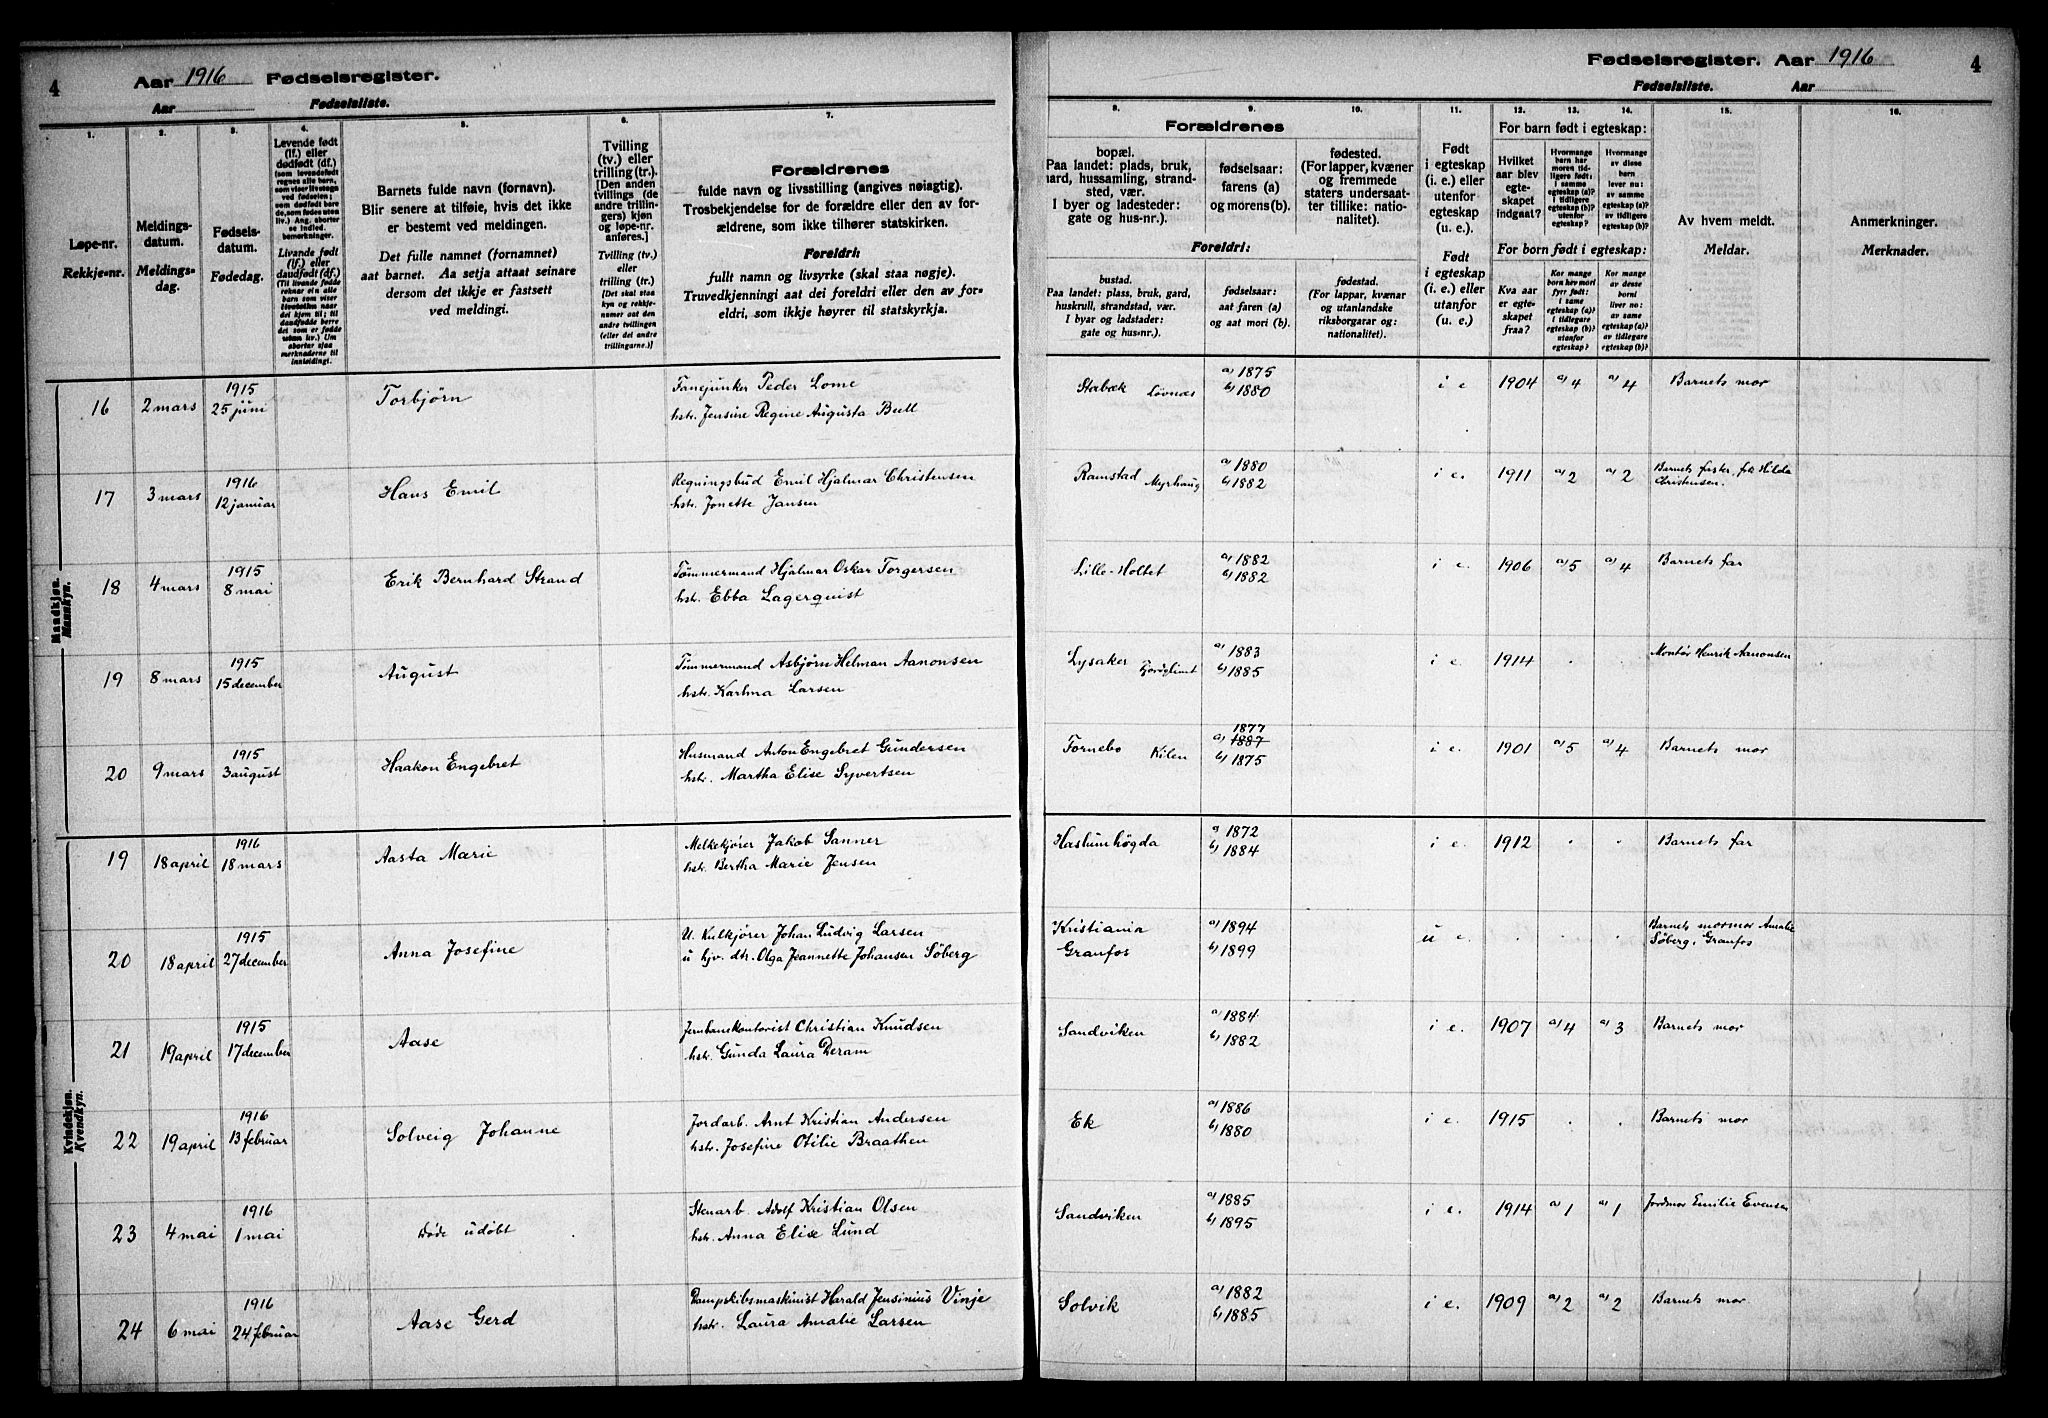 4 Aar 1916 Fødselsregister.
Aar Fødselsliste.
1. 2. 3. 4. 5. 6. 7.
Løpe-nr.
Rekkje-nr.
Meldings-
datum.
Meldings-
dag.
Fødsels-
datum.
Fødedag.
Levende født
(lf.) eller
dødfødt (df.)
Livande født
(lf.) eller
daudfødt (df.)
Barnets fulde navn (fornavn).
Blir senere at tilføie, hvis det ikke
er bestemt ved meldingen.
Det fulle namnet (fornamnet)
aat barnet. Aa setja attaat seinare
dersom det ikkje er fastsett
ved meldingi.
Tvilling
(tv.) eller
trilling (tr.).
[Den anden
tvillings (de
andre trillin-
gers) kjøn
og løpe-nr.
anføres.]
Tvilling (tv.)
eller
trilling (tr.)
Forældrenes
fulde navn og livsstilling (angives nøiagtig).
Trosbekjendelse for de forældre eller den av for-
ældrene, som ikke tilhører statskirken.
Foreldri:
fullt namn og livsyrke (skal staa nøgje).
Truvedkjenningi aat dei foreldri eller den av for-
eldri, som ikkje høyrer til statskyrkja.
Mandkjøn.
Mannkyn.
16 2 mars 1915 25 juni Torbjørn
Fanejunker Peder Lome
hstr. Jensine Regine Augusta Bull
17 3 mars 1916 12 januar Hans Emil
Regningsbud Emil Hjalmar Christensen
hstr. Jonette Jansen
18 4 mars 1915 8 mai Erik Bernhard Strand
Tømmermand Hjalmar Oskar Torgersen
hstr. Ebba Lagerquist
19 8 mars 1915 15 december August
Tømmermand Asbjørn Helman Aanonsen
hstr. Karlma Larsen
20 9 mars 1915 3 august Haakon Engebret
Husmand Anton Engebret Gundersen
hstr. Martha Elise Syvertsen
Kvindekjøn.
Kvendkyn.
19 18 april 1916 18 mars Aasta Marie
Melkekjører Jakob Sanner
hstr. Bertha Marie Jensen
20 18 april 1915 27 december Anna Josefine
U. Kulkjører Johan Ludvig Larsen
u hjv. dtr. Olga Jeannette Johansen Søberg
21 19 april 1915 17 december Aase
Jernbanekontorist Christian Knudsen
hstr. Gunda Laura Deram
22 19 april 1916 13 februar Solveig Johanne
Jordarb. Arnt Kristian Andersen
hstr. Josefine Otilie Braathen
23 4 mai 1916 1 mai Døde udøbt
Stenarb. Adolf Kristian Olsen
hstr. Anna Elise Lund
24 6 mai 1916 24 februar Aase Gerd
Dampskibsmaskinist Harald Jensinius Vinje
hstr. Laura Amalie Larsen
Fødselsregister. Aar 1916 4
Fødselsliste. Aar
8. 9. 10. 11. 12. 13. 14. 15. 16.
Forældrenes
bopæl.
Paa landet: plads, bruk,
gard, hussamling, strand-
sted, vær.
I byer og ladesteder:
gate og hus-nr.).
fødselsaar:
farens (a)
og morens (b).
fødested.
(For lapper, kvæner
og fremmede
staters undersaat-
ter tillike: natio-
nalitet).
Foreldri:
bustad.
Paa landet: plass, bruk, gard,
huskrull, strandstad, vær.
I byar og ladstader:
gate og hus-nr.).
fødselsaar:
aat faren (a)
og aat mori (b).
fødestad.
(For lappar, kvænar
og utanlandske
riksborgarar og:
nationalitet).
Født
i egteskap
(i. e.) eller
utenfor
egteskap
(u. e.).
Født
i egteskap
(i. e.) eller
utanfor
egteskap
(u. e.)
For barn født i egteskap:
Hvilket
aar blev
egte-
skapet
indgaat?
For born født i egteskap:
Kva aar
er egte-
skapet
fraa?
Av hvem meldt.
Meldar.
Anmerkninger.
Merknader.
Stabæk Løvnæs a) 1875 b) 1880 i e 1904 a) 4 a) 4 Barnets mor
Ramstad Myrhaug a) 1880 b) 1882 i e. 1911 a) 2 a) 2 Barnets faster, frk Hilda
Christensen.
Lille-Holtet a) 1882 b) 1882 i e. 1906 a) 5 a) 4 Barnets far
Lysaker Fjordglimt a) 1883 b) 1885 i e. 1914 . . Montør Henrik Aanonsen
Fornebo Kilen 1877 a) 1887 b) 1875 i e. 1901 a) 5 a) 4 Barnets mor
Haslumhøgda a) 1872 b) 1884 i e. 1912 . . Barnets far
Kristiania a) 1894 u e. . . . Barnets mormor Amalie
Granfos b) 1899 Søberg, Granfos
Sandviken a) 1884 b) 1882 i e. 1907 a) 4 a) 3 Barnets mor
Ek a) 1886 b) 1880 i e. 1915 . . Barnets mor
Sandviken a) 1885 b) 1895 i e. 1914 a) 1 a) 1 Jordmor Emilie Evensen
Solvik a) 1882 b) 1885 i e. 1909 a) 2 a) 2 Barnets mor